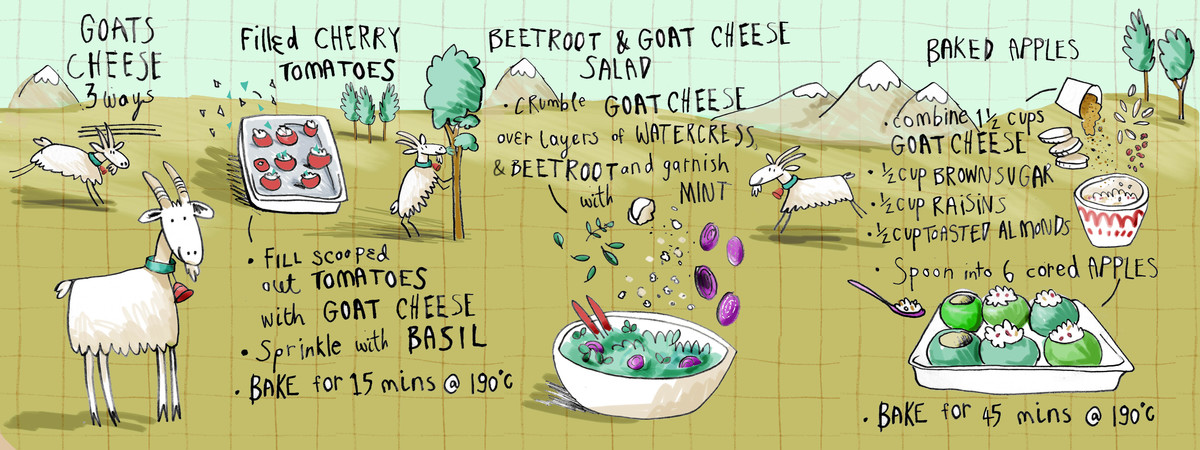 GOATS
CHEESE
3 ways
Filled CHERRY
TOMATOES
• FILL SCOOPED
out TOMATOES
with GOAT CHEESE
• Sprinkle with BASIL
• BAKE for 15 mins @ 190°C
BEETROOT & GOAT CHEESE
SALAD
• CRumble GOAT CHEESE
over layers of WATERCRESS,
& BEETROOT and garnish
with MINT
BAKED APPLES
• combine 1½ cups
GOAT CHEESE
• ½ cup BROWN SUGAR
• ½ cup RAISINS
• ½ cup TOASTED ALMONDS
• Spoon into 6 cored APPLES
• BAKE for 45 mins @ 190°C